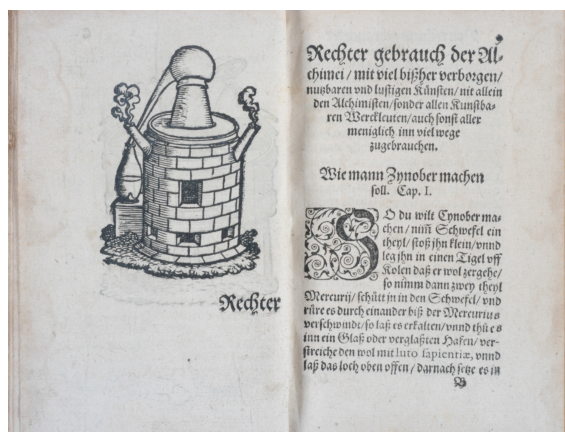 Rechter
Rechter gebrauch der Al-
chimei / mit viel bißher verborgen /
nutzbaren vnd lustigen Künsten / nit allein
den Alchimisten / sonder allen Kunstba-
ren Werckleuten / auch sonst aller
meniglich inn viel wege
zugebrauchen.
Wie mann Zynober machen
soll. Cap. I.
SO du wilt Cynober ma-
chen / nim̃ Schwefel ein
theyl / stoß jhn klein / vnnd
leg jhn in einen Tigel vff
Kolen daß er wol zergehe /
so nimm dann zwey theyl
Mercurij / schütt jn in den Schwefel / vnd
rüre es durch einander biß der Mercurius
verschwindt / so laß es erkalten / vnnd thů es
inn ein Glaß oder verglaßten Hafen / ver-
streiche den wol mit luto sapientiæ, vnnd
laß das loch oben offen / darnach setze es in